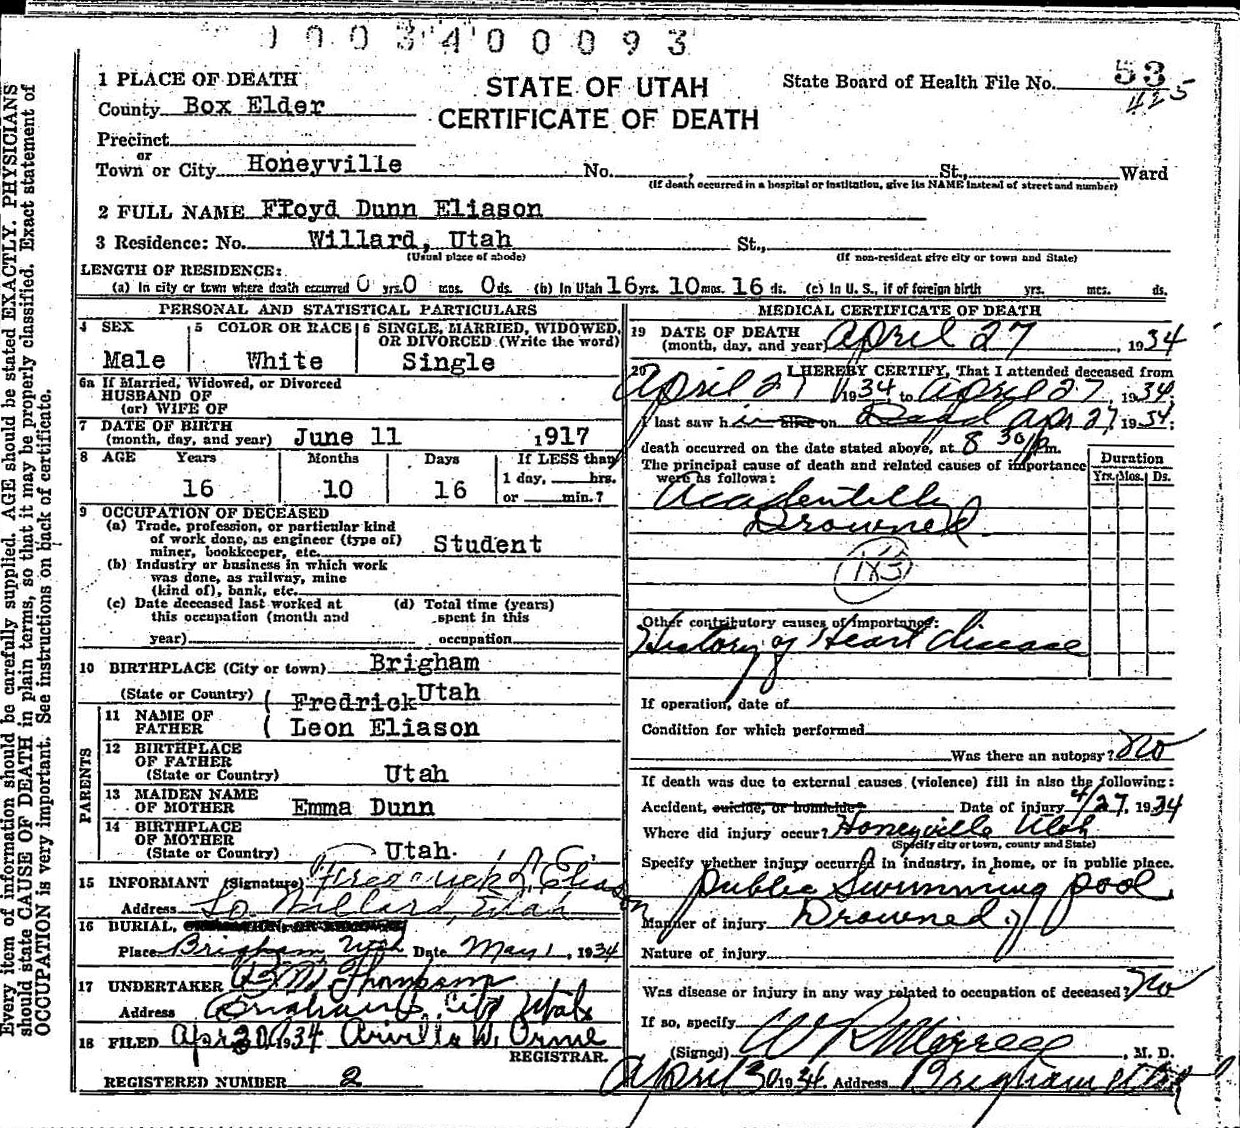 1003400093
1 PLACE OF DEATH
STATE OF UTAH
CERTIFICATE OF DEATH
State Board of Health File No. 53
425
County Box Elder
Precinct
or
Town or City Honeyville No. , St., Ward
(If death occurred in a hospital or institution, give its NAME instead of street and number)
2 FULL NAME Floyd Dunn Eliason
3 Residence: No. Willard, Utah St.,
(Usual place of abode) (If non-resident give city or town and State)
LENGTH OF RESIDENCE:
(a) In city or town where death occurred 0 yrs. 0 mos. 0 ds. (b) In Utah 16 yrs. 10 mos. 16 ds. (c) In U. S., if of foreign birth yrs. mos. ds.
PERSONAL AND STATISTICAL PARTICULARS
4 SEX
Male
5 COLOR OR RACE
White
6 SINGLE, MARRIED, WIDOWED,
OR DIVORCED (Write the word)
Single
6a If Married, Widowed, or Divorced
HUSBAND OF
(or) WIFE OF
7 DATE OF BIRTH
(month, day, and year) June 11 1917
8 AGE Years Months Days If LESS than
1 day, hrs.
16 10 16 or min.?
9 OCCUPATION OF DECEASED
(a) Trade, profession, or particular kind
of work done, as engineer (type of)
miner, bookkeeper, etc. Student
(b) Industry or business in which work
was done, as railway, mine
(kind of), bank, etc.
(c) Date deceased last worked at
this occupation (month and
year)
(d) Total time (years)
spent in this
occupation
10 BIRTHPLACE (City or town) Brigham
(State or Country) Utah
11 NAME OF
FATHER
Fredrick
Leon Eliason
PARENTS
12 BIRTHPLACE
OF FATHER
(State or Country) Utah
13 MAIDEN NAME
OF MOTHER Emma Dunn
14 BIRTHPLACE
OF MOTHER
(State or Country) Utah.
15 INFORMANT (Signature) Frederick L. Eliason
Address So. Willard, Utah
16 BURIAL,
Place Brigham Utah Date May 1, 1934
17 UNDERTAKER Thompson
Address Brigham City Utah
18 FILED Apr 30 1934 Arvilla W. Orme
REGISTRAR.
REGISTERED NUMBER 2
MEDICAL CERTIFICATE OF DEATH
19 DATE OF DEATH
(month, day, and year) April 27, 1934
20 I HEREBY CERTIFY, That I attended deceased from
April 27, 1934, to April 27, 1934.
I last saw him alive on Dead Apr 27, 1934;
death occurred on the date stated above, at 8 30 p m.
The principal cause of death and related causes of importance
were as follows:
Duration
Yrs. Mos. Ds.
Accidentally
Drowned
183
Other contributory causes of importance:
History of Heart disease
If operation, date of
Condition for which performed
Was there an autopsy? No
If death was due to external causes (violence) fill in also the following:
Accident, suicide, or homicide? Date of injury 4/27, 1934
Where did injury occur? Honeyville Utah
(Specify city or town, county and State)
Specify whether injury occurred in industry, in home, or in public place.
public Swimming pool
Manner of injury Drowned
Nature of injury
Was disease or injury in any way related to occupation of deceased? No
If so, specify
(Signed) W R Merrell, M. D.
April 30 1934. Address Brigham Utah
Every item of information should be carefully supplied. AGE should be stated EXACTLY. PHYSICIANS
should state CAUSE OF DEATH in plain terms, so that it may be properly classified. Exact statement of
OCCUPATION is very important. See instructions on back of certificate.